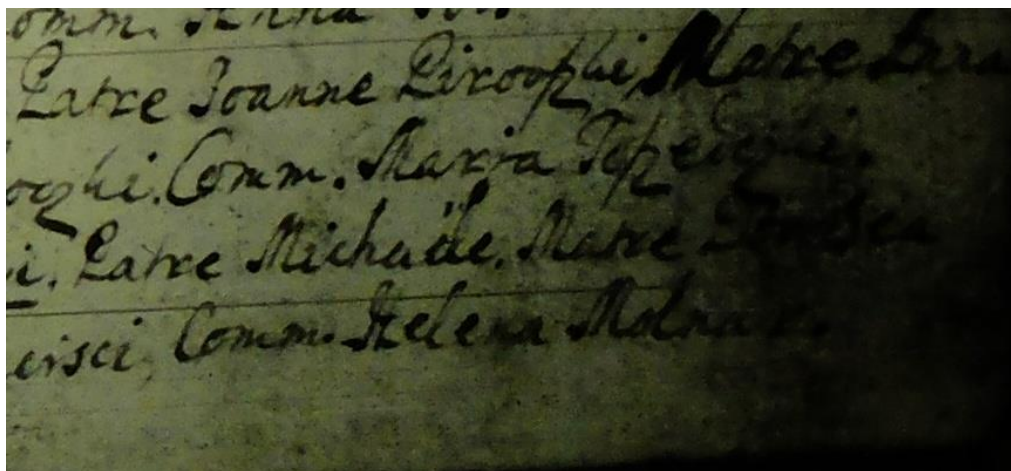 omm. Anna
Patre Joanne Piroophi Matre
oghi. Comm. Maria
i. Patre Michaële. Matre
ersci, Comm. Helena Molnar.